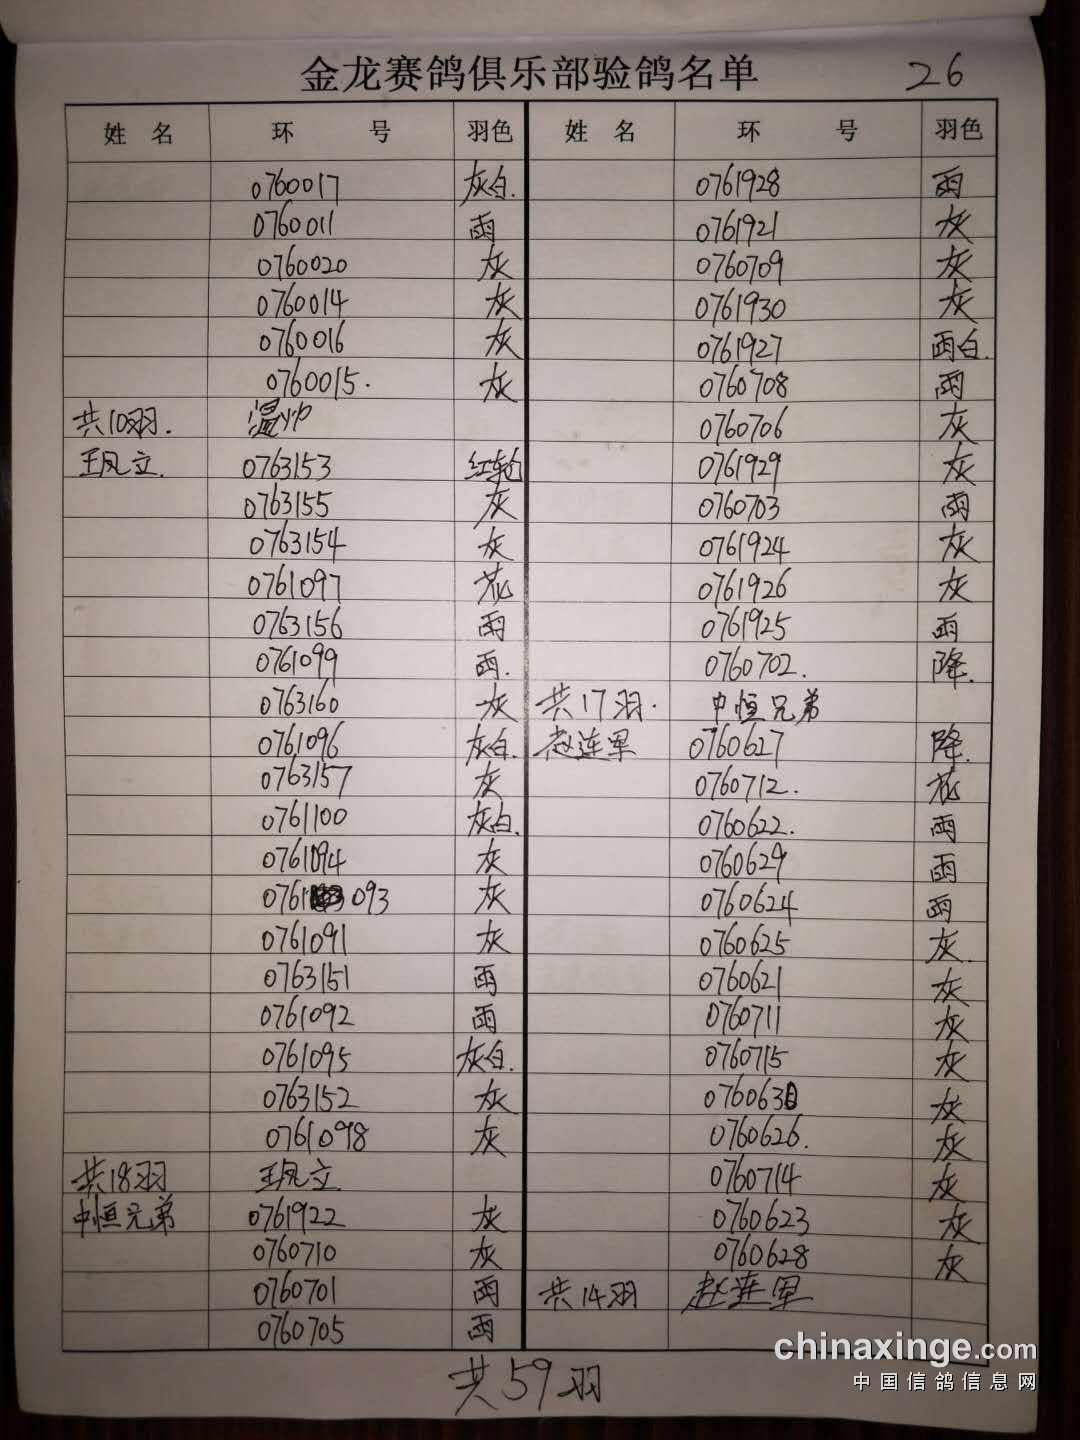 金龙赛鸽俱乐部验鸽名单
26
姓 名 环 号 羽色
0760017 灰白.
0760011 雨
0760020 灰
0760014 灰
0760016 灰
0760015. 灰
共10羽. 温帅
王凤立. 0763153 红轮
0763155 灰
0763154 灰
0761097 花
0763156 雨
0761099 雨.
0763160 灰
0761096 灰白.
0763157 灰
0761100 灰白.
0761094 灰
0761 093 灰
0761091 灰
0763151 雨
0761092 雨
0761095 灰白.
0763152 灰
0761098 灰
共18羽 王凤立
中恒兄弟 0761922 灰
0760710 灰
0760701 雨
0760705 雨
姓 名 环 号 羽色
0761928 雨
0761921 灰
0760709 灰
0761930 灰
0761927 雨白.
0760708 雨
0760706 灰
0761929 灰
0760703 雨
0761924 灰
0761926 灰
0761925 雨
0760702. 降.
共17羽. 中恒兄弟
赵连军 0760627 降.
0760712. 花
0760622. 雨
0760629 雨
0760624 雨
0760625 灰.
0760621 灰
0760711 灰
0760715 灰
0760630 灰
0760626. 灰
0760714 灰
0760623 灰
0760628 灰
共14羽 赵连军
共59羽
chinaxinge.com
中国信鸽信息网